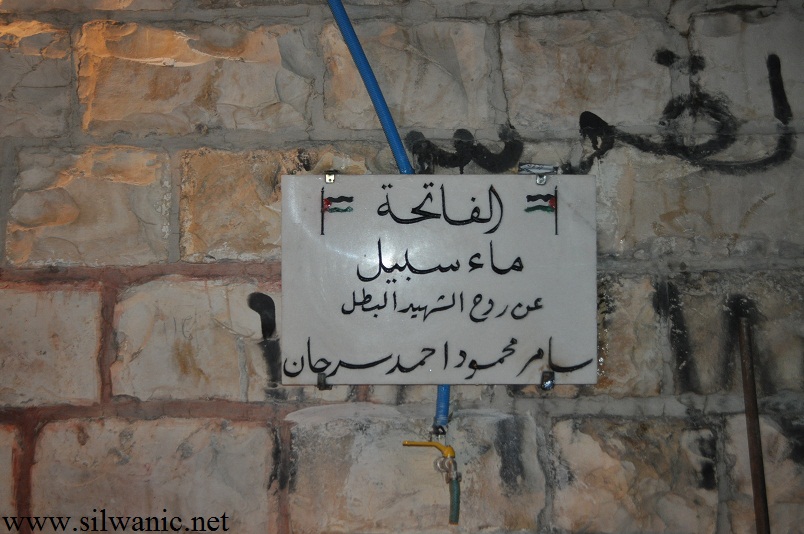 الفاتحة
ماء سبيل
عن روح الشهيد البطل
سامر محمود احمد سرحان
www.silwanic.net